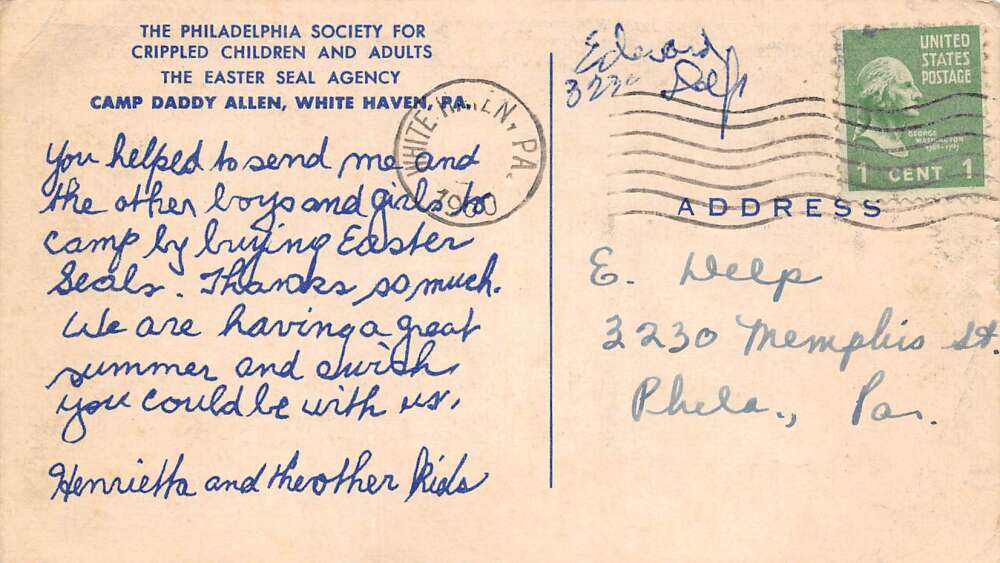 THE PHILADELPHIA SOCIETY FOR
CRIPPLED CHILDREN AND ADULTS
THE EASTER SEAL AGENCY
CAMP DADDY ALLEN, WHITE HAVEN, PA.
You helped to send me and
the other boys and girls to
camp by buying Easter
Seals. Thanks so much.
We are having a great
summer and I wish
you could be with us.
Henrietta and the other kids
WHITE HAVEN, PA.
1960
Edward
Delp
UNITED
STATES
POSTAGE
GEORGE
WASHINGTON
1 CENT 1
ADDRESS
E. Delp
3230 Memphis St.
Phela., Pa.